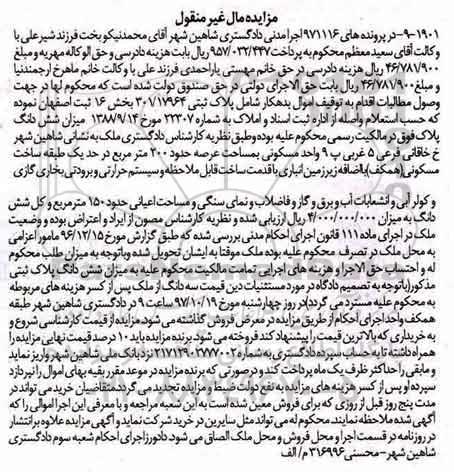 مزایده مال غیر منقول
۱۹۰۱-۹-در پرونده های ۹۷۱۱۱۶ اجرا مدنی دادگستری شاهین شهر آقای محمد نیکو بخت فرزند شیر علی با
وکالت آقای سعید معظم محکوم به پرداخت ۹۵۷/۰۳۲/۴۴۷ ریال بابت هزینه دادرسی و حق الوکاله مهریه و مبلغ
۴۶/۷۸۱/۹۰۰ ریال هزینه دادرسی در حق خانم مهستی یاراحمدی فرزند علی با وکالت خانم ماهرخ ارجمندنیا
و مبلغ ۴۶/۷۸۱/۹۰۰ ریال بابت حق الاجرای دولتی در حق صندوق دولت شده است که محکوم لها در جهت
وصول مطالبات اقدام به توقیف اموال بدهکار شامل پلاک ثبتی ۳۰۱/۱۷۹۶۴ بخش ۱۶ ثبت اصفهان نموده
که حسب استعلام واصله از اداره ثبت اسناد و املاک به شماره ۲۳۳۰۷ مورخ ۱۳۸۸/۹/۱۴ میزان شش دانگ
پلاک فوق در مالکیت رسمی محکوم علیه بوده وطبق نظریه کارشناس دادگستری ملک به نشانی شاهین شهر
خ خاقانی فرعی ۵ غربی پ ۹ واحد مسکونی بمساحت عرصه حدود ۲۰۰ متر مربع در حد یک طبقه ساخت
مسکونی(همکف)باضافه زیرزمین انباری با قدمت ساخت قابل ملاحظه و سیستم حرارتی و برودتی بخاری گازی
و کولر آبی و انشعابات آب و برق و گاز و فاضلاب و نمای سنگی و مساحت اعیانی حدود ۱۵۰ متر مربع و کل شش
دانگ به میزان ۴/۰۰۰/۰۰۰/۰۰۰ ریال ارزیابی شده و نظریه کارشناس مصون از ایراد و اعتراض بوده و وضعیت
ملک در اجرای ماده ۱۱۱ قانون اجرای احکام مدنی بررسی شده که طبق گزارش مورخ ۹۶/۱۲/۱۵ مامور اعزامی
به محل ملک در تصرف محکوم علیه بوده ملک موقتا به ایشان تحویل شده وباتوجه به میزان طلب محکوم
له و احتساب حق الاجرا و هزینه های اجرایی، تمامت مالکیت محکوم علیه به میزان شش دانگ پلاک ثبتی
مذکور(باتوجه به تصمیم دادگاه در مورد مستثنیات دین قیمت سه دانگ از ملک پس از کسر هزینه های مربوطه
به محکوم علیه مسترد می گردد)در روز چهارشنبه مورخ ۹۷/۱۰/۱۹ ساعت ۹ در دادگستری شاهین شهر طبقه
همکف واحد اجرای احکام از طریق مزایده در معرض فروش گذاشته می شود.مزایده از قیمت کارشناسی شروع و
به خریداری که بالاترین قیمت را پیشنهاد کند فروخته می شود.برنده مزایده باید ۱۰ درصد قیمت نهایی مزایده را
همراه داشته تا به حساب سپرده دادگستری به شماره ۲۱۷۱۲۹۰۲۷۷۰۰۲ نزد بانک ملی شاهین شهر واریز نماید
و مابقی را حداکثر ظرف یک ماه پرداخت کند و درصورتی که برنده مزایده در موعد مقرر بقیه بهای اموال را نپردازد
سپرده او پس از کسر هزینه های مزایده به نفع دولت ضبط و مزایده تجدید می گردد.متقاضیان خرید می توانند در
مدت پنج روز قبل از روزی که برای فروش معین شده است به این شعبه مراجعه و با معرفی این اجرا اموالی را که
آگهی شده ملاحظه نمایند.محکوم له می تواند مثل سایرین در خرید شرکت نماید و آگهی مزایده علاوه بر انتشار
در روزنامه در قسمت اجرا و محل فروش و محل ملک الصاق می شود.دادورز اجرای احکام شعبه سوم دادگستری
شاهین شهر-محسنی ۳۱۶۹۹۶/م الف